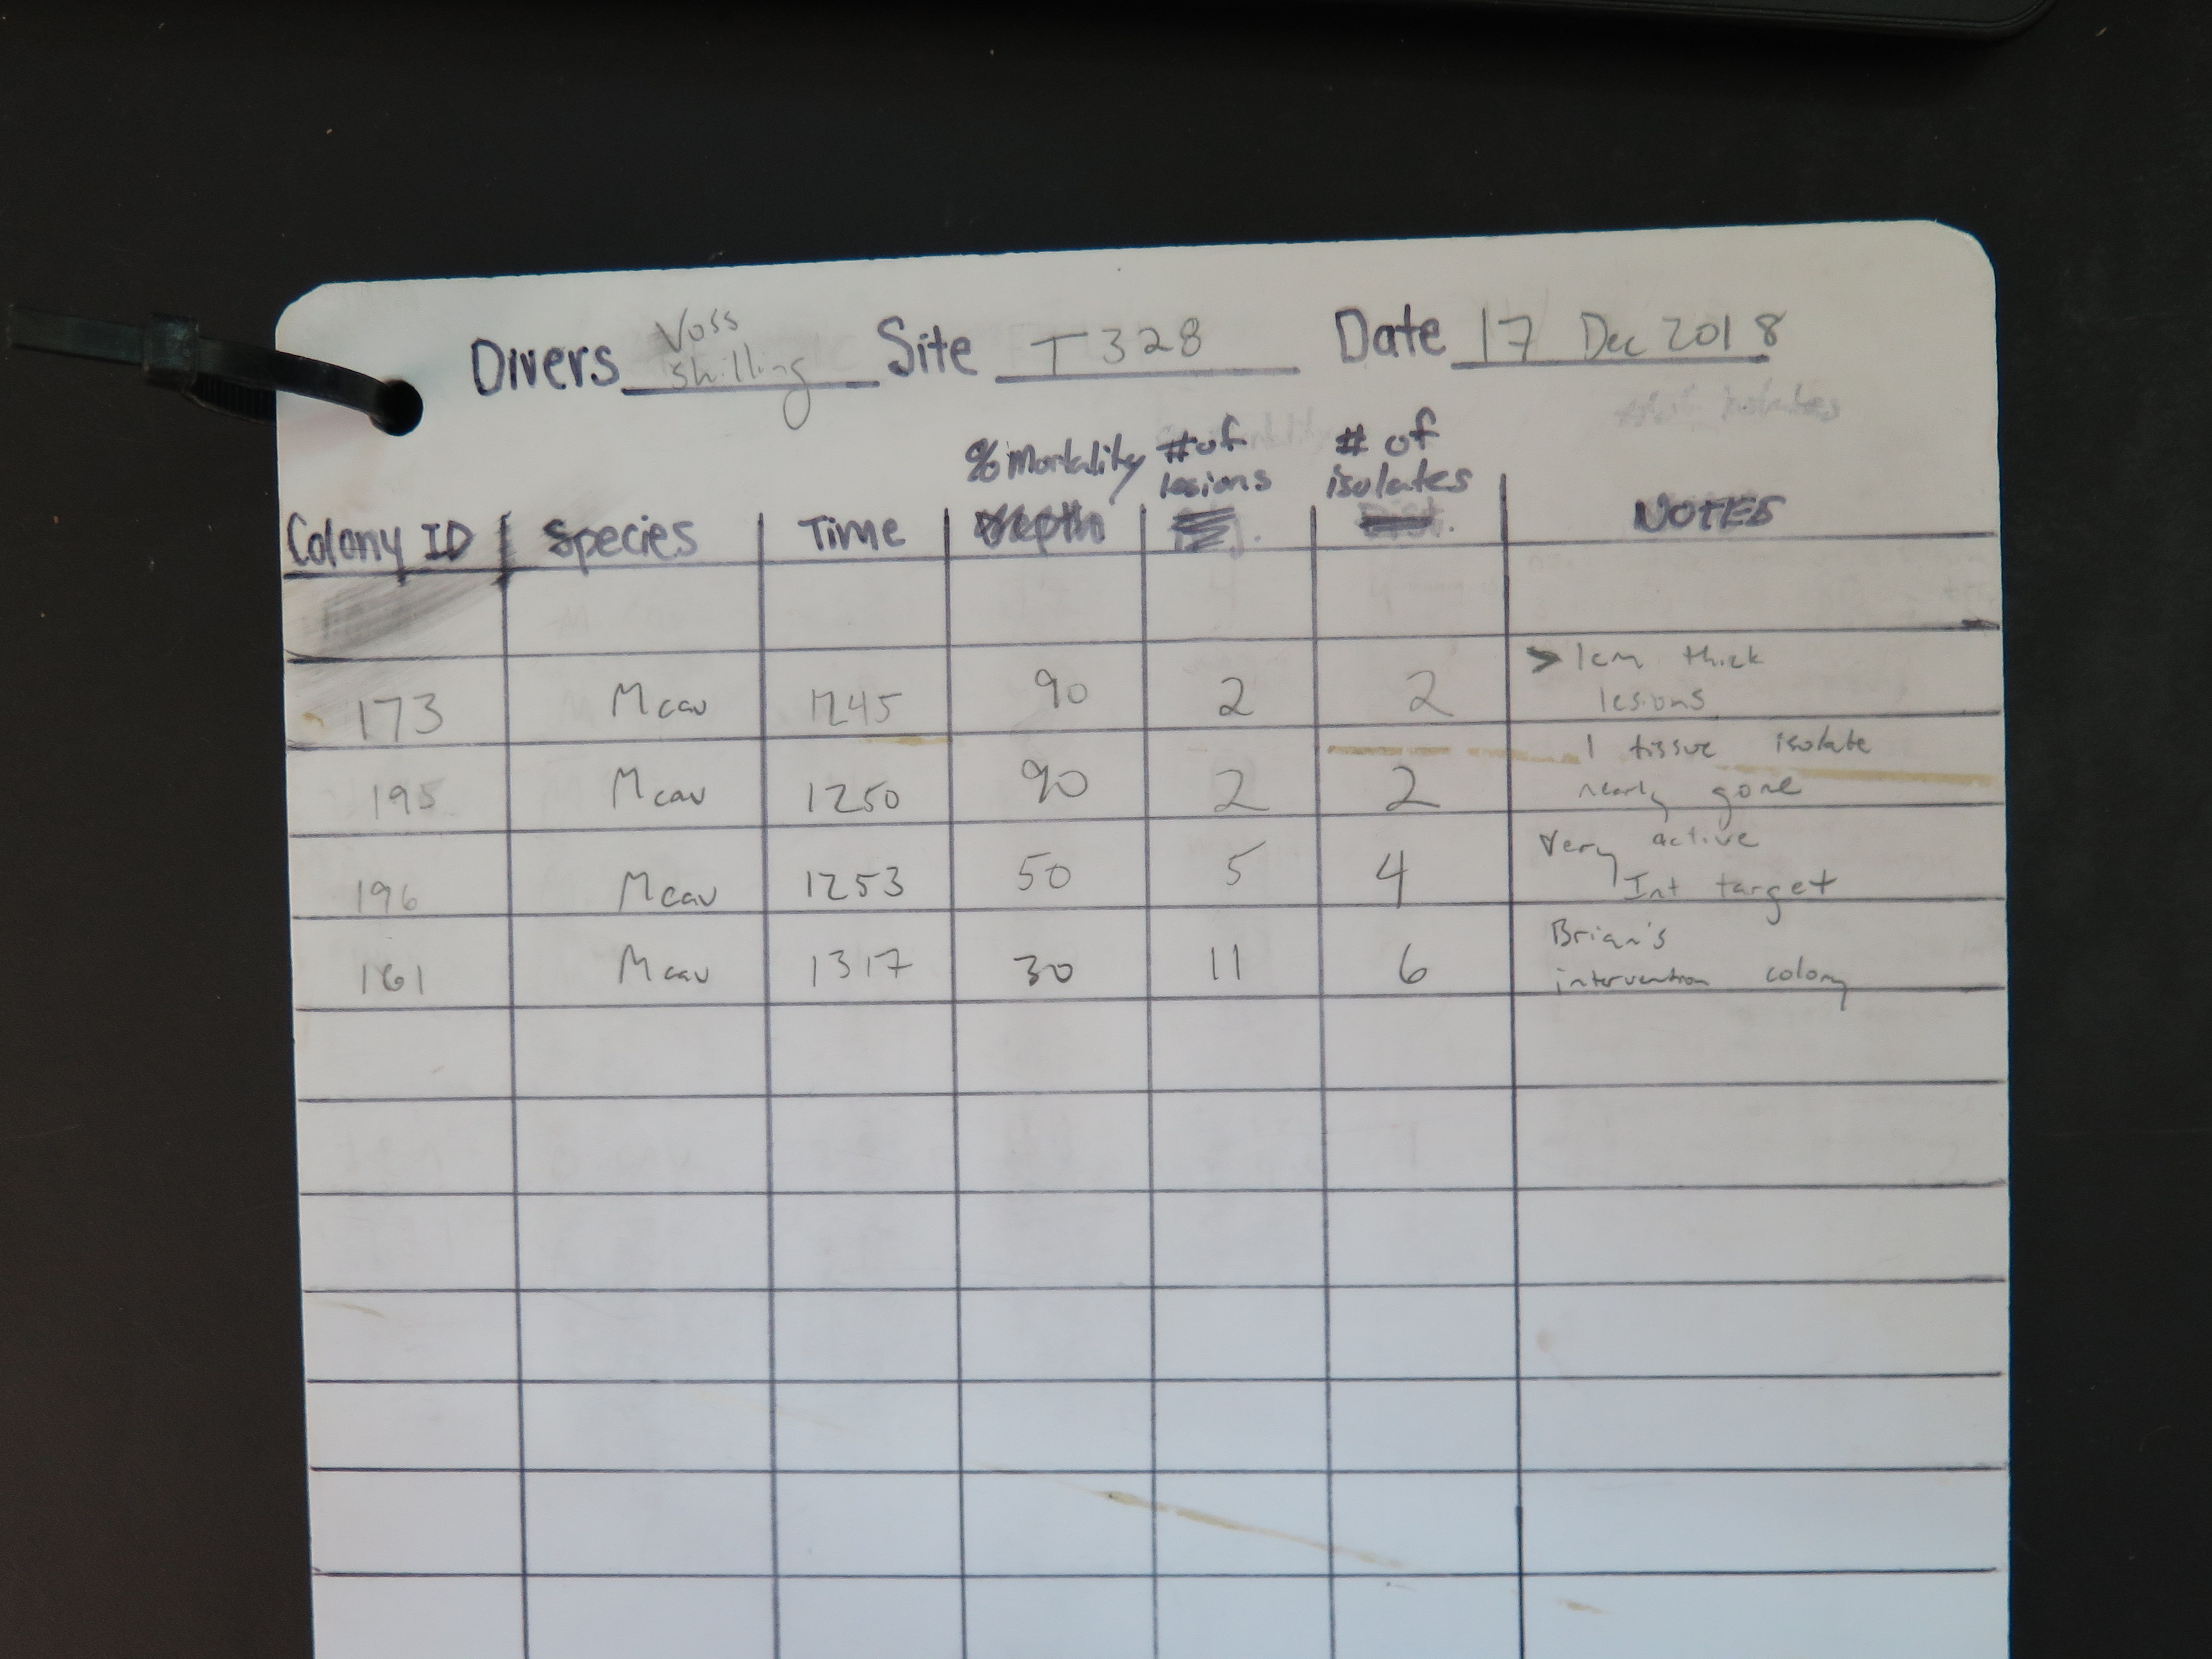 Divers Voss Shilling Site T328 Date 17 Dec 2018
% Mortality # of lesions # of isolates
Colony ID Species Time Depth NOTES
173 Mcav 1245 90 2 2 >1cm thick lesions
195 Mcav 1250 90 2 2 1 tissue isolate nearly gone
196 Mcav 1253 50 5 4 Very active Int target
161 Mcav 1317 30 11 6 Brian's intervention colony